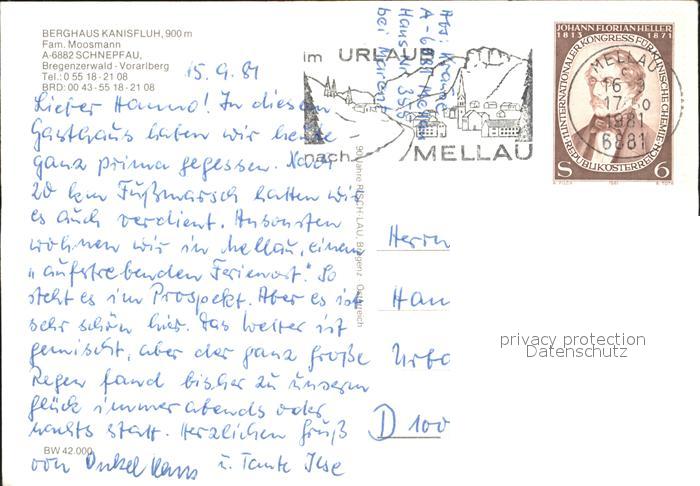 BERGHAUS KANISFLUH, 900 m
Fam. Moosmann
A-6882 SCHNEPFAU,
Bregenzerwald - Vorarlberg
Tel.: 0 55 18 - 21 08
BRD: 00 43 - 55 18 - 21 08
15.9.81
Lieber Hanno! In diesem
Gasthaus haben wir heute
ganz prima gegessen. Nach
20 km Fußmarsch hatten wir
es auch verdient. Ansonsten
wohnen wir in Mellau, einem
"aufstrebenden Ferienort." So
steht es im Prospekt. Aber es ist
sehr schön hier. Das Wetter ist
gemischt, aber der ganz große
Regen fand bisher zu unserm
Glück immer abends oder
nachts statt. Herzlichen Gruß
von Onkel Hans u. Tante Ilse
BW 42.000
Abs: Krause
A-6881 Mellau
Haus Nr. 355
bei
im URLAUB
nach MELLAU
MELLAU
17
1981
6881
JOHANN FLORIAN HELLER
1813 1871
VIII. INTERNATIONALER KONGRESS FÜR KLINISCHE CHEMIE
REPUBLIK ÖSTERREICH
S 6
1981
90 Jahre RISCH-LAU, Bregenz Österreich
Herrn
Han
Urba
D 100
privacy protection
Datenschutz